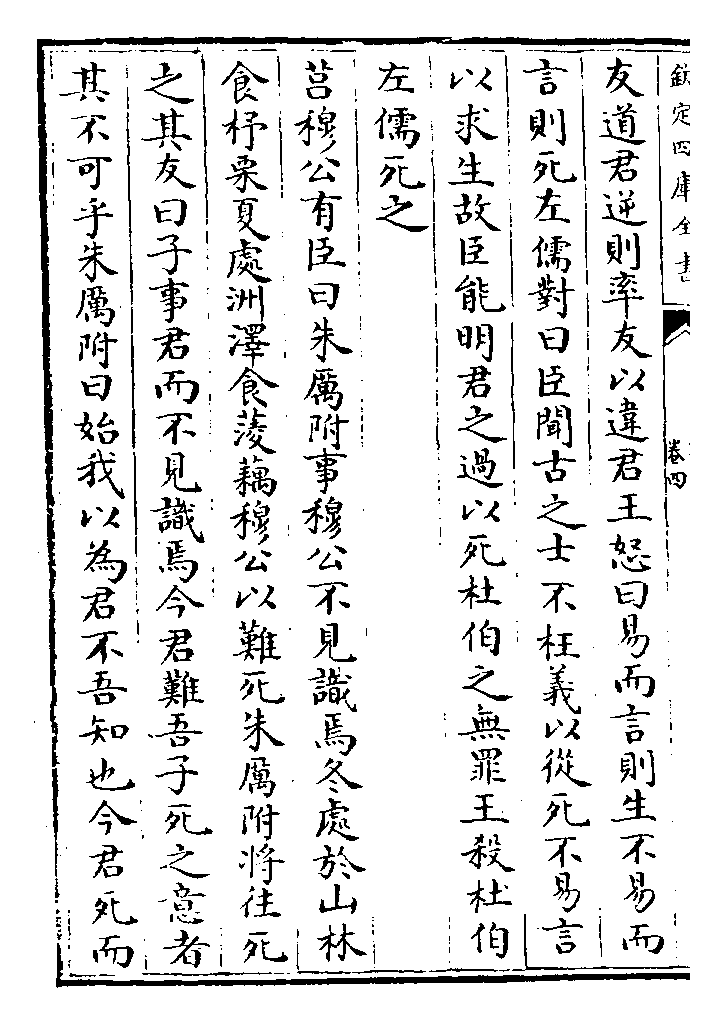 欽定四庫全書
卷四
友道君逆則率友以違君王怒曰易而言則生不易而
言則死左儒對曰臣聞古之士不枉義以從死不易言
以求生故臣能明君之過以死杜伯之無罪王殺杜伯
左儒死之
莒穆公有臣曰朱厲附事穆公不見識焉冬處於山林
食杼栗夏處洲澤食蔆藕穆公以難死朱厲附將往死
之其友曰子事君而不見識焉今君難吾子死之意者
其不可乎朱厲附曰始我以為君不吾知也今君死而